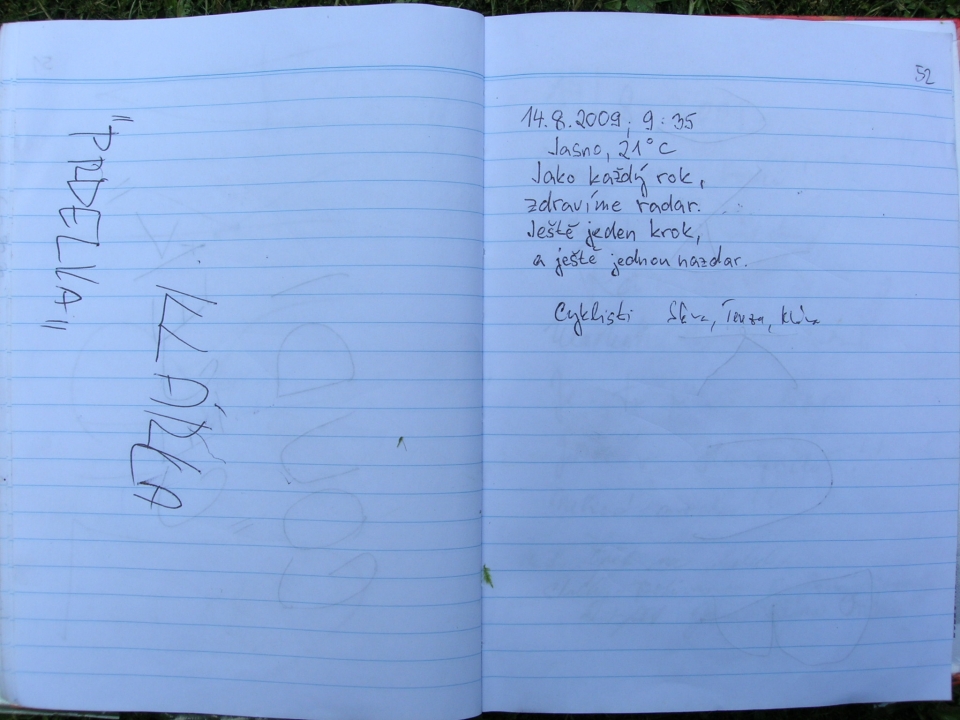 "PRDELKA"
KLÁRKA
52
14.8.2009, 9:35
Jasno, 21°C
Jako každý rok,
zdravíme radar.
Ještě jeden krok,
a ještě jednou nazdar.
Cyklisti